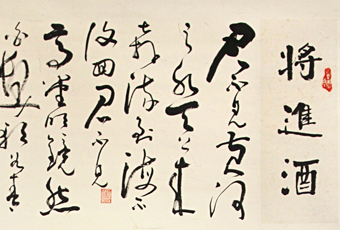 將進酒
君不見黃河
之水天上來
奔流到海不
復回君不見
高堂明鏡